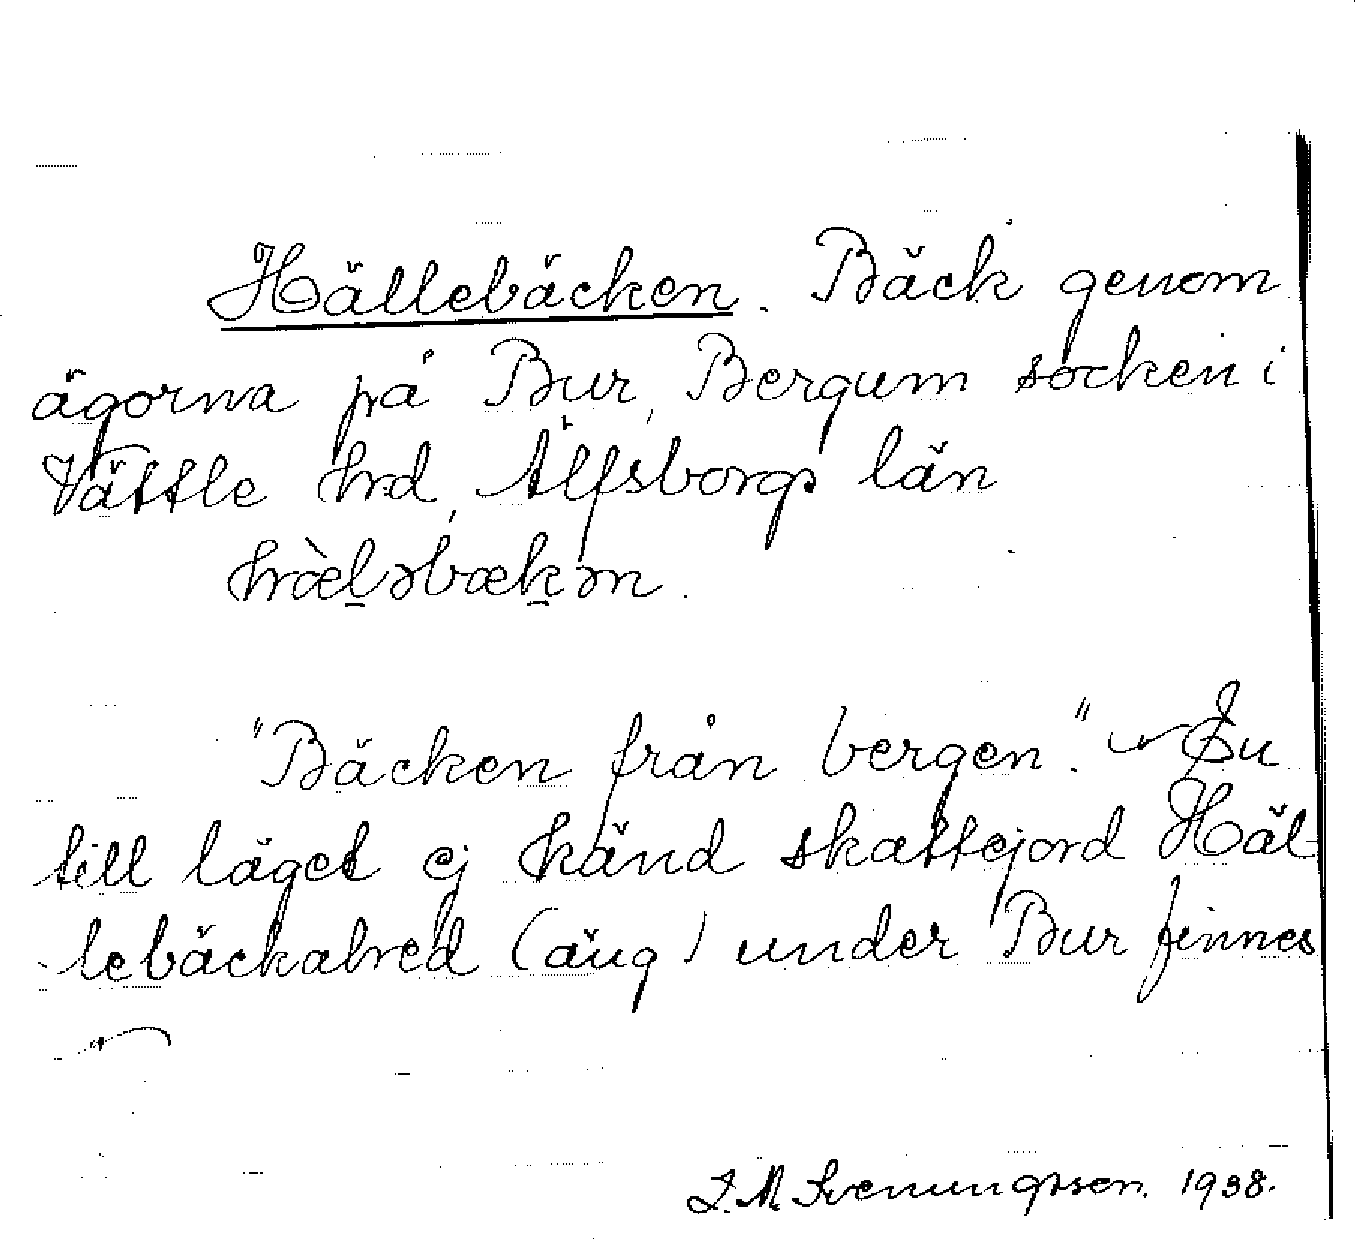 Hällebäcken. Bäck genom
ägorna på Bur, Bergum socken i
Vättle hrd, Älfsborgs län
hæ̀l̲əbæk̲ən.
"Bäcken från bergen". En
till läget ej känd skattejord Häl-
lebäckabred (äug) under Bur finnes
J. M. Svenungsson. 1938.